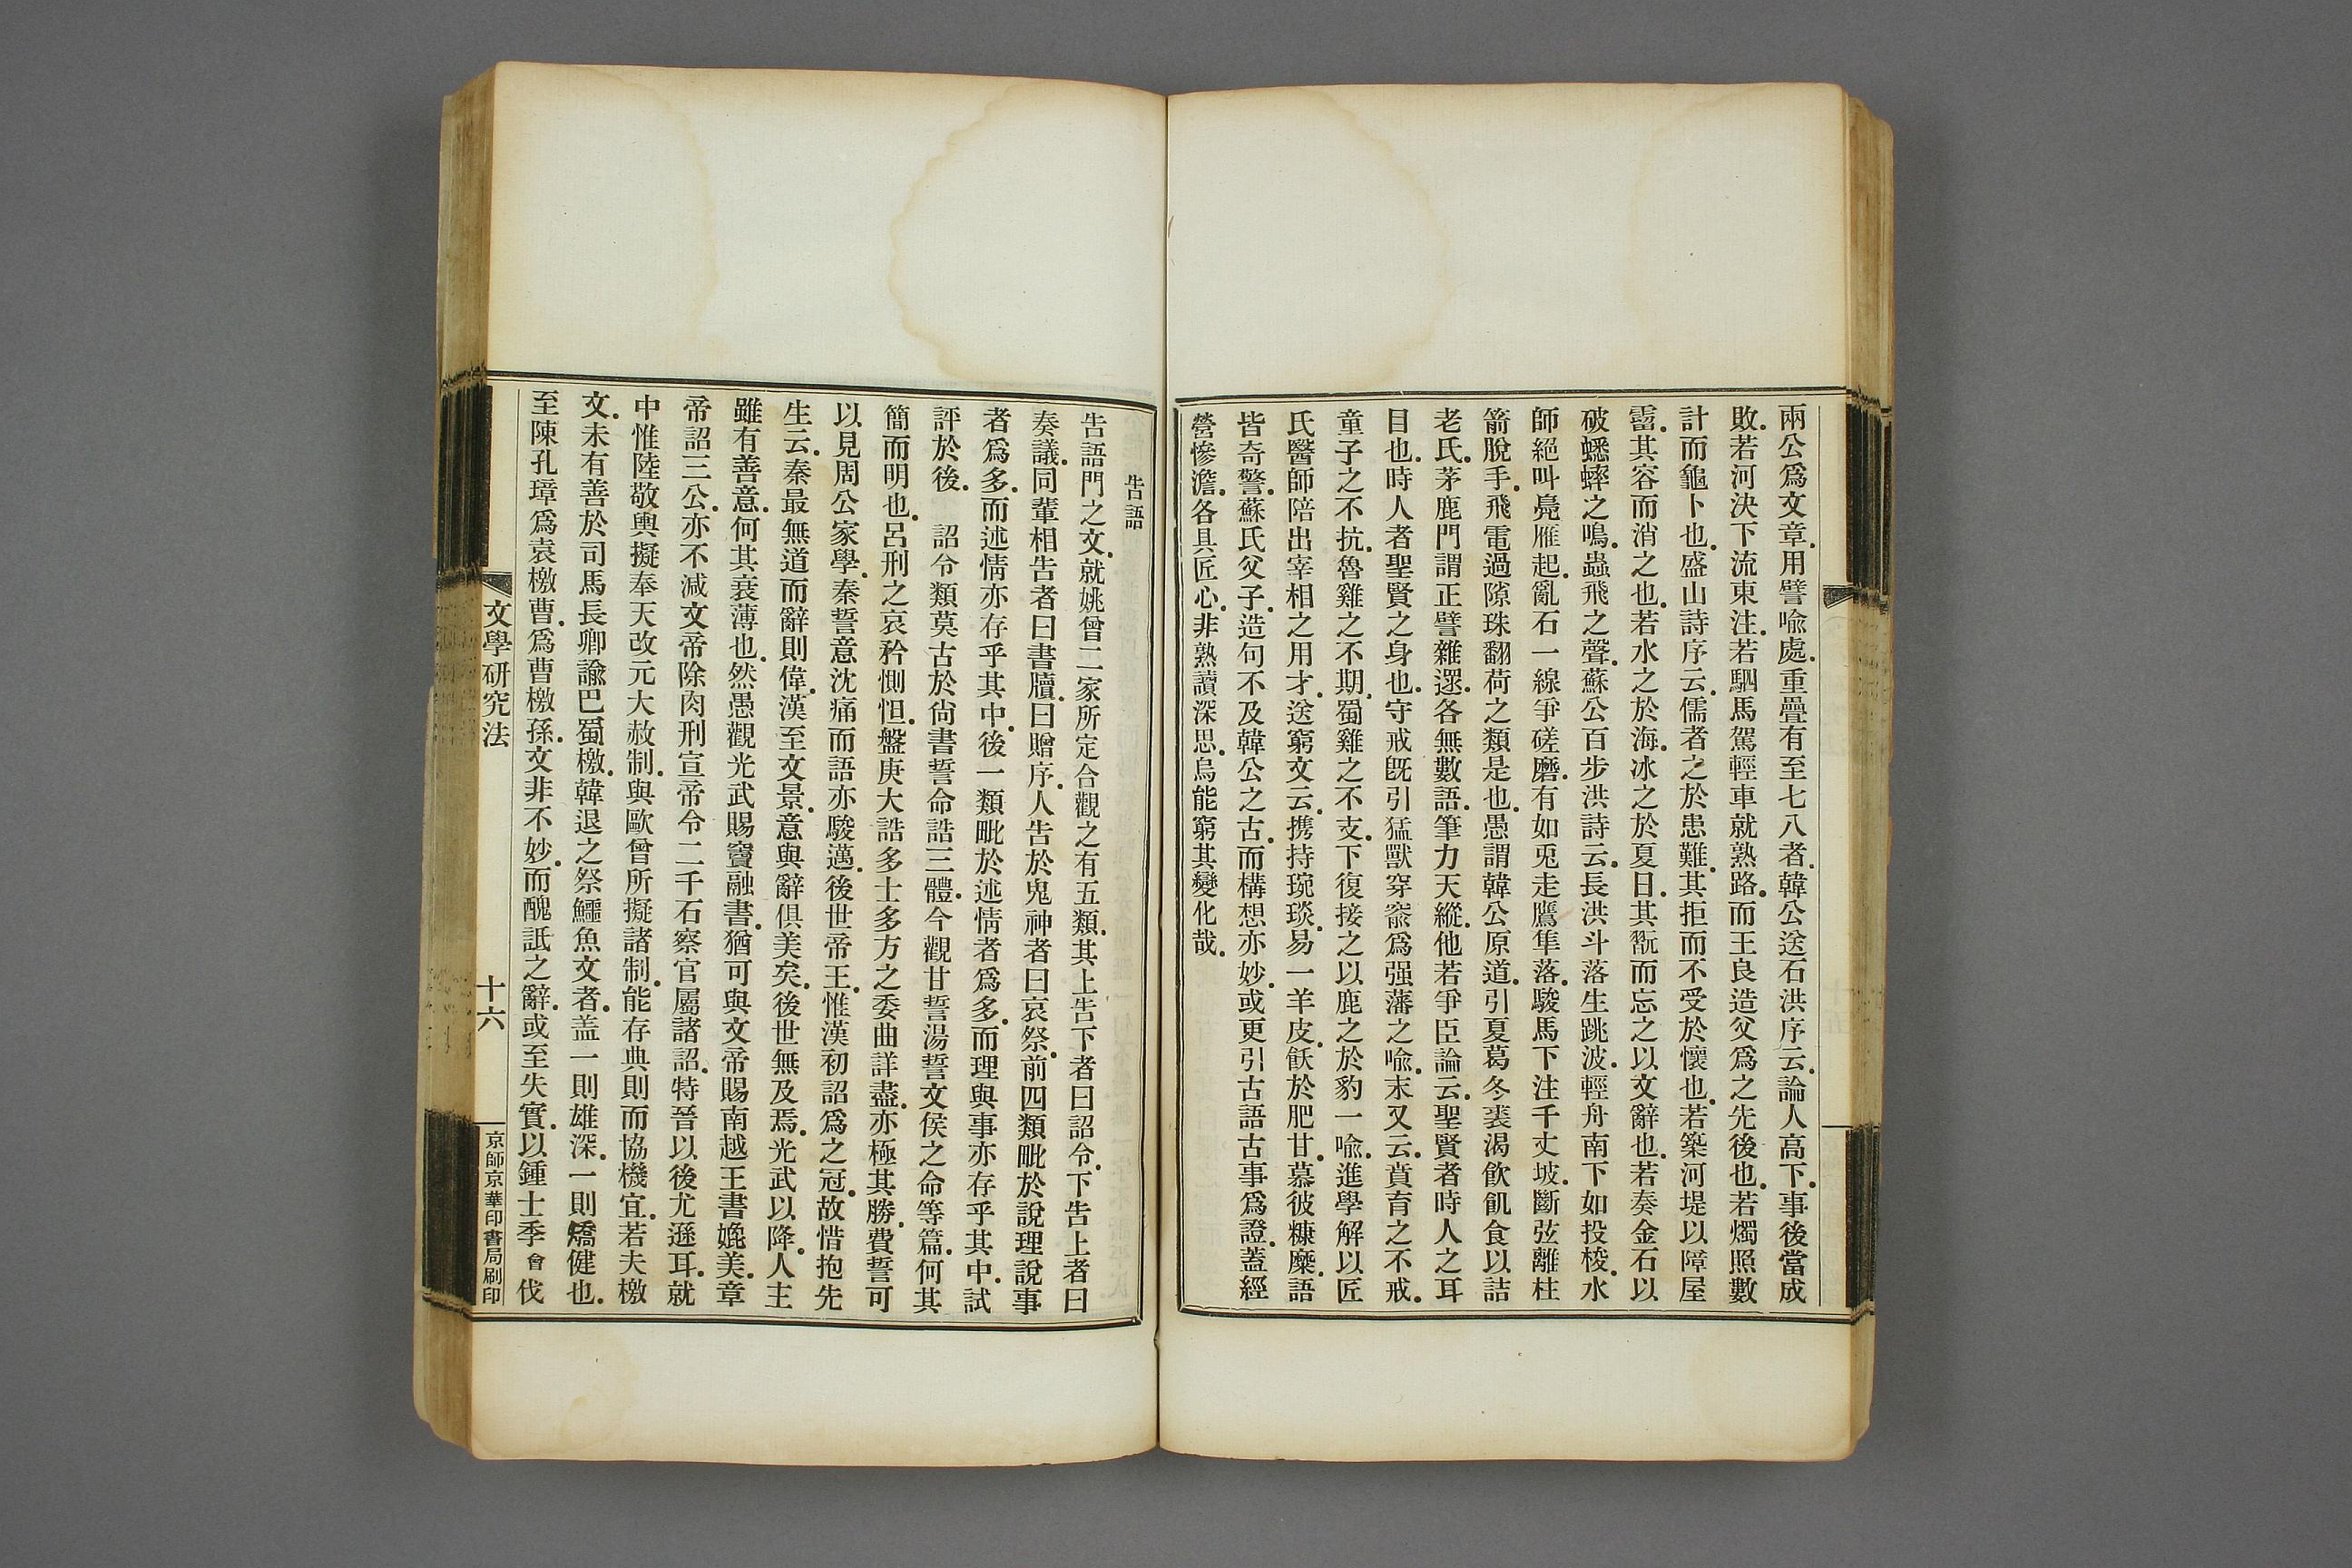 兩公爲文章.用譬喩處.重疊有至七八者.韓公送石洪序云.論人高下.事後當成
敗.若河決下流東注.若駟馬駕輕車就熟路.而王良造父爲之先後也.若燭照數
計而龜卜也.盛山詩序云.儒者之於患難.其拒而不受於懷也.若築河堤以障屋
霤.其容而消之也.若水之於海.冰之於夏日.其翫而忘之以文辭也.若奏金石以
破蟋蟀之鳴.蟲飛之聲.蘇公百步洪詩云.長洪斗落生跳波.輕舟南下如投梭.水
師絕叫鳧雁起.亂石一線爭磋磨.有如兎走鷹隼落.駿馬下注千丈坡.斷弦離柱
箭脫手.飛電過隙珠翻荷之類是也.愚謂韓公原道.引夏葛冬裘渴飮飢食以詰
老氏.茅鹿門謂正譬雜遝.各無數語.筆力天縱.他若爭臣論云.聖賢者時人之耳
目也.時人者聖賢之身也.守戒旣引猛獸穿窬爲强藩之喩.末又云.賁育之不戒.
童子之不抗.魯雞之不期.蜀雞之不支.下復接之以鹿之於豹一喩.進學解以匠
氏醫師陪出宰相之用才.送窮文云.携持琬琰.易一羊皮.飫於肥甘.慕彼糠糜.語
皆奇警.蘇氏父子.造句不及韓公之古.而構想亦妙.或更引古語古事爲證.蓋經
營慘澹.各具匠心.非熟讀深思.烏能窮其變化哉.
告語
告語門之文.就姚曾二家所定合觀之有五類.其上告下者曰詔令.下告上者曰
奏議.同輩相告者曰書牘.曰贈序.人告於鬼神者曰哀祭.前四類毗於說理說事
者爲多.而述情亦存乎其中.後一類毗於述情者爲多.而理與事亦存乎其中.試
評於後.　詔令類莫古於尙書誓命誥三體.今觀甘誓湯誓文侯之命等篇.何其
簡而明也.呂刑之哀矜惻怛.盤庚大誥多士多方之委曲詳盡.亦極其勝.費誓可
以見周公家學.秦誓意沈痛而語亦駿邁.後世帝王.惟漢初詔爲之冠.故惜抱先
生云.秦最無道而辭則偉.漢至文景.意與辭俱美矣.後世無及焉.光武以降.人主
雖有善意.何其衰薄也.然愚觀光武賜竇融書.猶可與文帝賜南越王書媲美.章
帝詔三公.亦不減文帝除肉刑宣帝令二千石察官屬諸詔.特晉以後尤遜耳.就
中惟陸敬輿擬奉天改元大赦制.與歐曾所擬諸制.能存典則而協機宜.若夫檄
文.未有善於司馬長卿諭巴蜀檄.韓退之祭鱷魚文者.盖一則雄深.一則矯健也.
至陳孔璋爲袁檄曹.爲曹檄孫.文非不妙.而醜詆之辭.或至失實.以鍾士季會伐
文學硏究法
十六
京師京華印書局刷印